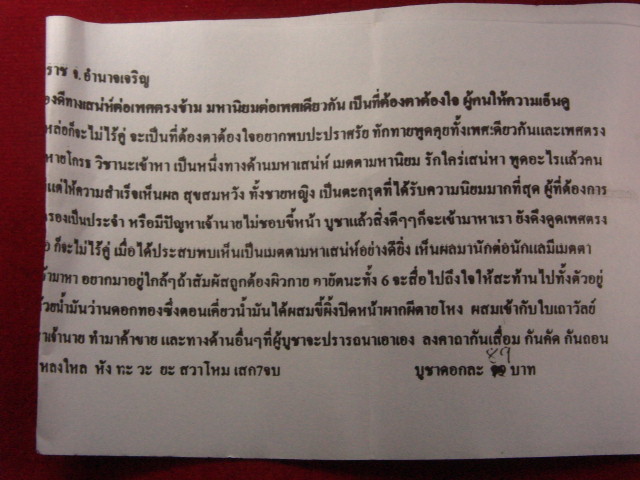 ราช จ.อำนาจเจริญ
องดีทางเสน่ห์ต่อเพศตรงข้าม มหานิยมต่อเพศเดียวกัน เป็นที่ต้องตาต้องใจ ผู้คนให้ความเอ็นดู
หล่อก็จะไม่ไร้คู่ จะเป็นที่ต้องตาต้องใจอยากพบปะปราศรัย ทักทายพูดคุยทั้งเพศเดียวกันและเพศตรง
หายโกรธ วิชานะเข้าหา เป็นหนึ่งทางด้านมหาเสน่ห์ เมตตามหานิยม รักใคร่เสน่หา พูดอะไรแล้วคน
แต่ให้ความสำเร็จเห็นผล สุขสมหวัง ทั้งชายหญิง เป็นตะกรุดที่ได้รับความนิยมมากที่สุด ผู้ที่ต้องการ
ครองเป็นประจำ หรือมีปัญหาเจ้านายไม่ชอบขี้หน้า บูชาแล้วสิ่งดีๆๆก็จะเข้ามาหาเรา ยังดึงดูดเพศตรง
ก็จะไม่ไร้คู่ เมื่อได้ประสบพบเห็นเป็นเมตตามหาเสน่ห์อย่างดียิ่ง เห็นผลมานักต่อนักแลมีเมตตา
ข้ามาหา อยากมาอยู่ใกล้ๆถ้าสัมผัสถูกต้องผิวกาย อายัตนะทั้ง 6 จะสื่อไปถึงใจให้สะท้านไปทั้งตัวอยู่
ด้วยน้ำมันว่านดอกทองซึ่งตอนเคี่ยวน้ำมันได้ผสมขี้ผึ้งปิดหน้าผากผีตายโหง ผสมเข้ากับใบเถาวัลย์
าเจ้านาย ทำมาค้าขาย และทางด้านอื่นๆที่ผู้บูชาจะปรารถนาเอาเอง ลงคาถากันเสื่อม กันคัด กันถอน
หลงใหล หัง ทะ วะ ยะ สวาโหม เสก7จบ บูชาดอกละ 89 บาท